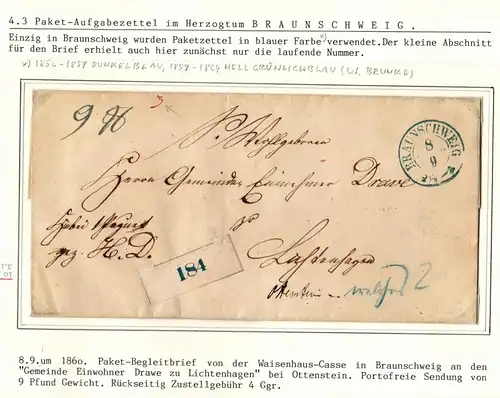 4.3 Paket-Aufgabezettel im Herzogtum B R A U N S C H W E I G .
Einzig in Braunschweig wurden Paketzettel in blauer Farbe x) verwendet.Der kleine Abschnitt
für den Brief erhielt auch hier zunächst nur die laufende Nummer.
x) 1856-1858 DUNKELBLAU, 1858-1864 HELL GRÜNLICHBLAU (LT. BRUNKE)
3
9 ℔
Wohlgeboren
BRAUNSCHWEIG
8
9
Herrn Gemeinde Einnehmer Drawe
zu
Hiebei 1 Paquet
gez. H. D.
184
Lichtenhagen
Ottenstein
welches 2
8.9.um 186o. Paket-Begleitbrief von der Waisenhaus-Casse in Braunschweig an den
"Gemeinde Einwohner Drawe zu Lichtenhagen" bei Ottenstein. Portofreie Sendung von
9 Pfund Gewicht. Rückseitig Zustellgebühr 4 Ggr.